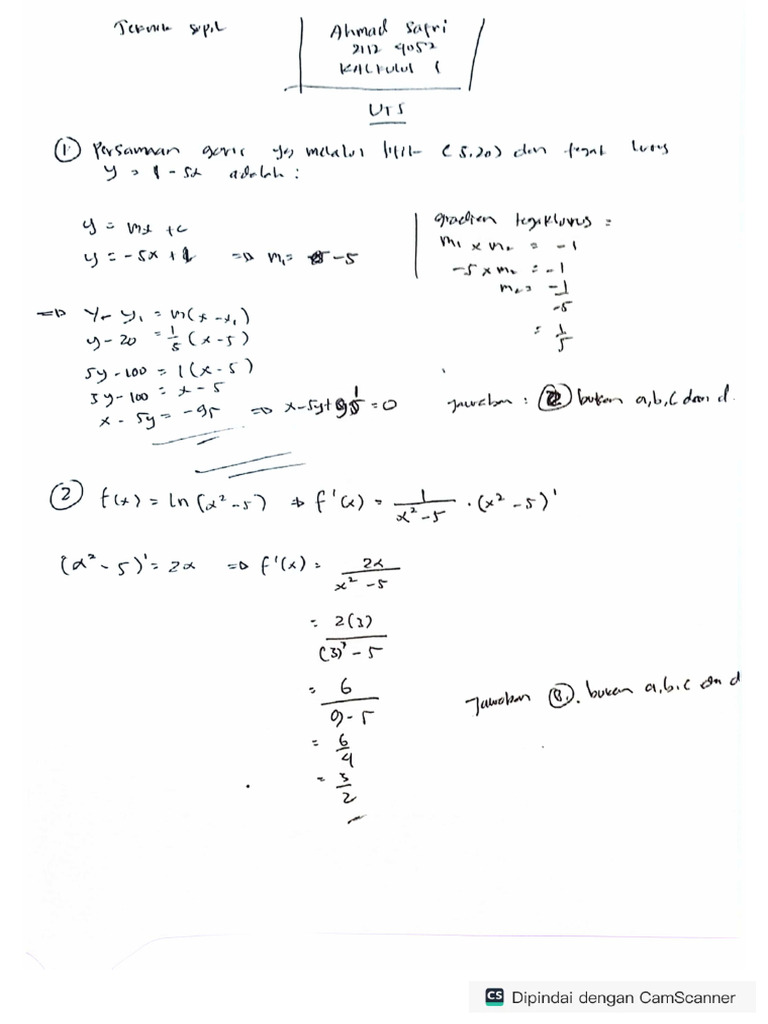 Teknik sipil
Ahmad Safri
2112 4052
KALKULUS 1
UTS
① Persamaan garis yg melalui titik (5.20) dan tegak lurus
y = 1 - 5x adalah :
y = mx + c
y = -5x + 1 => m₁ = -5
gradien tegak lurus =
m₁ x m₂ = -1
-5 x m₂ = -1
m₂ = -1
-5
= 1
5
=> y - y₁ = m(x - x₁)
y - 20 = 1/5 (x - 5)
5y - 100 = 1(x - 5)
5y - 100 = x - 5
x - 5y = -95 => x - 5y + 95 = 0
Jawaban : bukan a,b,c dan d.
② f(x) = ln (x² - 5) => f'(x) = 1/(x² - 5) . (x² - 5)'
(x² - 5)' = 2x => f'(x) = 2x/(x² - 5)
= 2(3)
(3)² - 5
= 6
9 - 5
Jawaban bukan a,b,c dan d
= 6
4
= 3
2
CS Dipindai dengan CamScanner